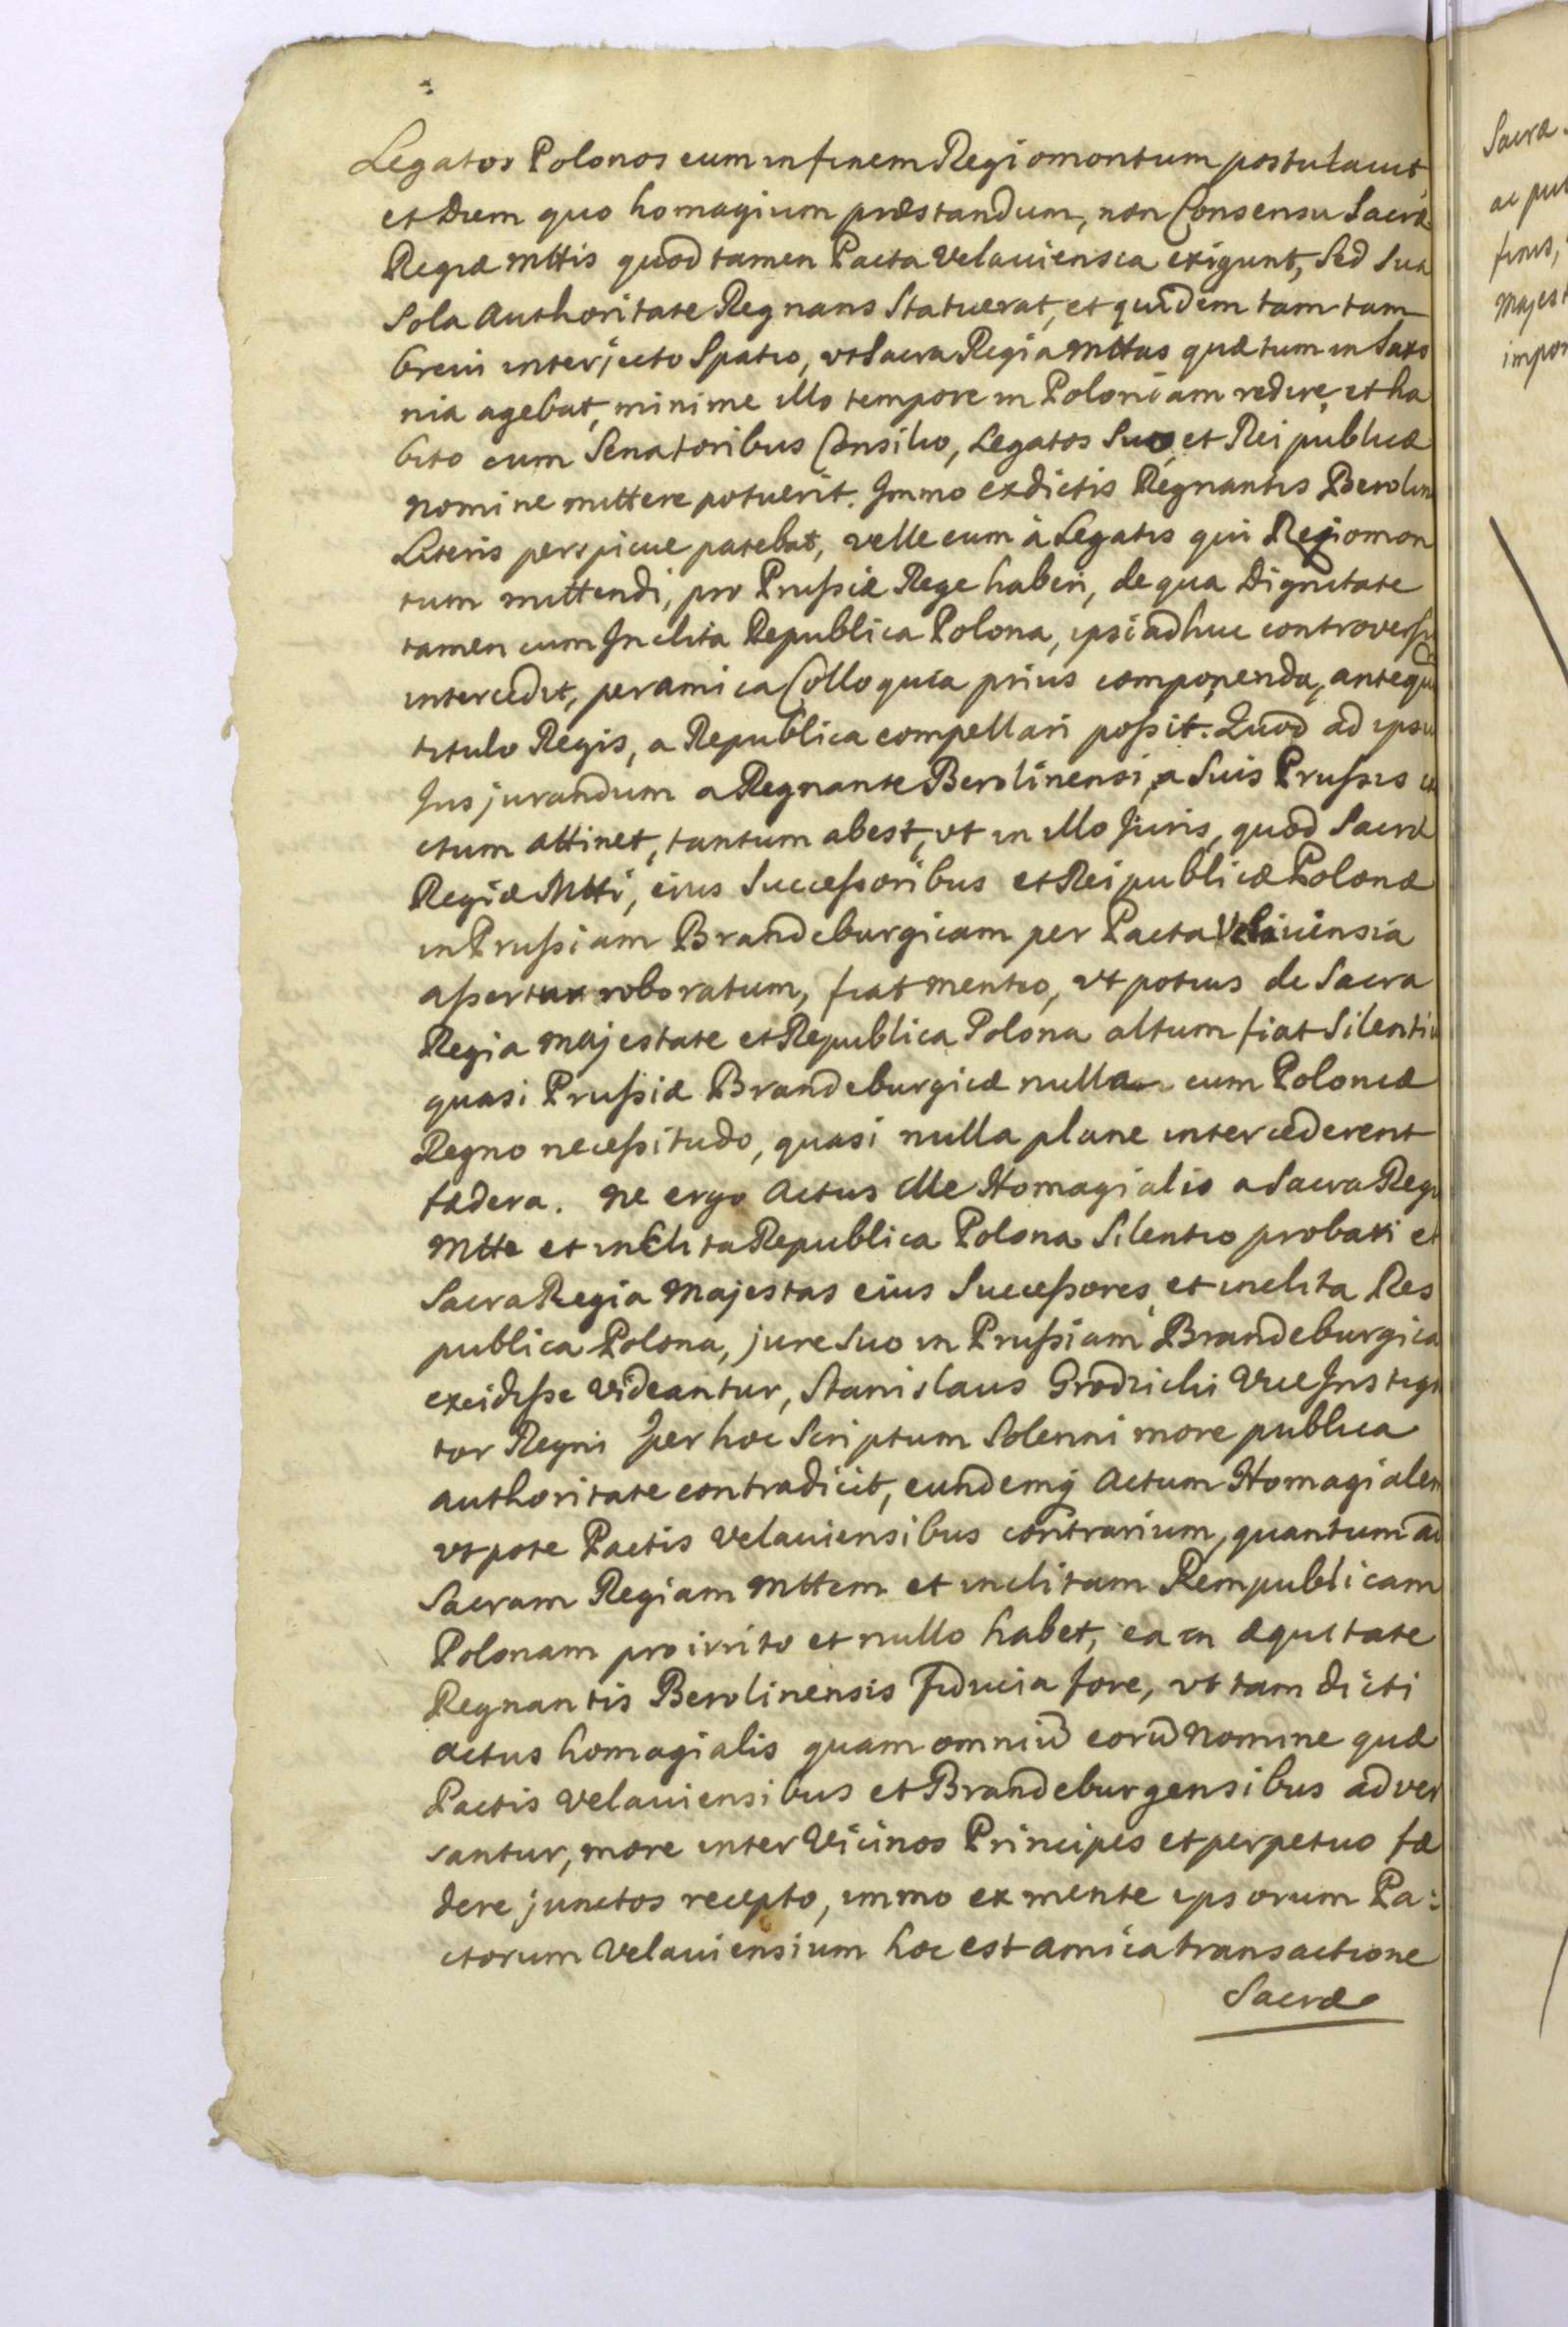 Legatos Polonos eum in finem Regiomontum postulauit,
et Diem quo homagium præstandum, non Consensu Sacræ
Regiæ Mttis quod tamen Pacta Velauiensia exigunt, Sed Sua
Sola Authoritate Regnans Statuerat, et quidem tam tam
breui interjecto Spatio, vt Sacra Regia Mttas quæ tum in Saxo
nia agebat, minime illo tempore in Poloniam redire, et ha
bito cum Senatoribus Consilio, Legatos Suo, et Rei publicæ
nomine mittere potuerit. Immo ex dictis Regnantis Berolin
Literis perspicue patebat, velle eum à Legatis qui Regiomon
tum mittendi, pro Prussiæ Rege haberi, de qua Dignitate
tamen cum Inclita Republica Polona, ipsi adhuc controversi
intercedit, per amica Colloquia prius componenda, antequ
titulo Regis, a Republica compellari possit. Quod ad ipsu
Jus jurandum a Regnante Berolinensi, a Suis Prussis ex
ctum attinet, tantum abest, vt in illo Juris, quod Sacræ
Regiæ Mtti, eius Successoribus et Rei publicæ Polonæ
in Prussiam Brandeburgicam per Pacta Velauiensia
assertum roboratum, fiat mentio, vt potius de Sacra
Regia Majestate et Republica Polona altum fiat Silentiu
quasi Prussiæ Brandeburgicæ nulla cum Poloniæ
Regno necessitudo, quasi nulla plane intercederent
fædera. Ne ergo Actus ille Homagialis a Sacra Regi
Mtte et inclita Republica Polona Silentio probari et
Sacra Regia Majestas eius Successores et inclita Res
publica Polona, jure Suo in Prussiam Brandeburgica
excidisse Videantur, Stanislaus Grodzichi Vice Instiga
tor Regni per hoc Scriptum Solenni more publica
authoritate contradicit, eundemq Actum Homagialem
vt pote Pactis Velauiensibus contrarium, quantum ad
Sacram Regiam Mttem et inclitam Rempublicam
Polonam pro irrito et nullo habet, ea in æquitate
Regnantis Berolinensis fiducia fore, vt tam dicti
actus homagialis quam omniu eoru Nomine quæ
Pactis Velauiensibus et Brandeburgensibus adver
santur, more inter Vicinos Principes et perpetuo fæ
dere junctos recepto, immo ex mente ipsorum Pa:
ctorum Velauiensium hoc est amica transactione
Sacræ
Sacræ
ac pu
finis,
Majest
impor